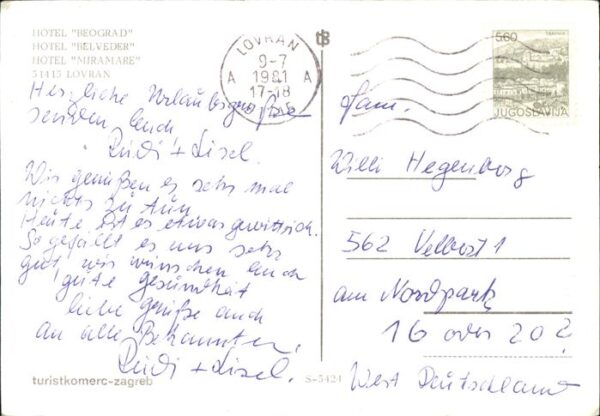 HOTEL "BEOGRAD"
HOTEL "BELVEDER"
HOTEL "MIRAMARE"
51415 LOVRAN
Herzliche Urlaubsgrüße
senden Euch
Rudi + Lisel.
Wir genießen es sehr mal
nichts zu tun
Heute ist es etwas gewittrich.
So gefällt es uns sehr
gut wir wünschen Euch
gute gesundheit
liebe grüße auch
an alle Bekannten,
Rudi + Lisel.
turistkomerc-zagreb
LOVRAN
9-7
A 1981 A
17-18
S-5424
5.60
JUGOSLAVIJA
Fam.
Willi Hegenborg
562 Velbert 1
am Nordpark
16 oder 20?
West Deutschland